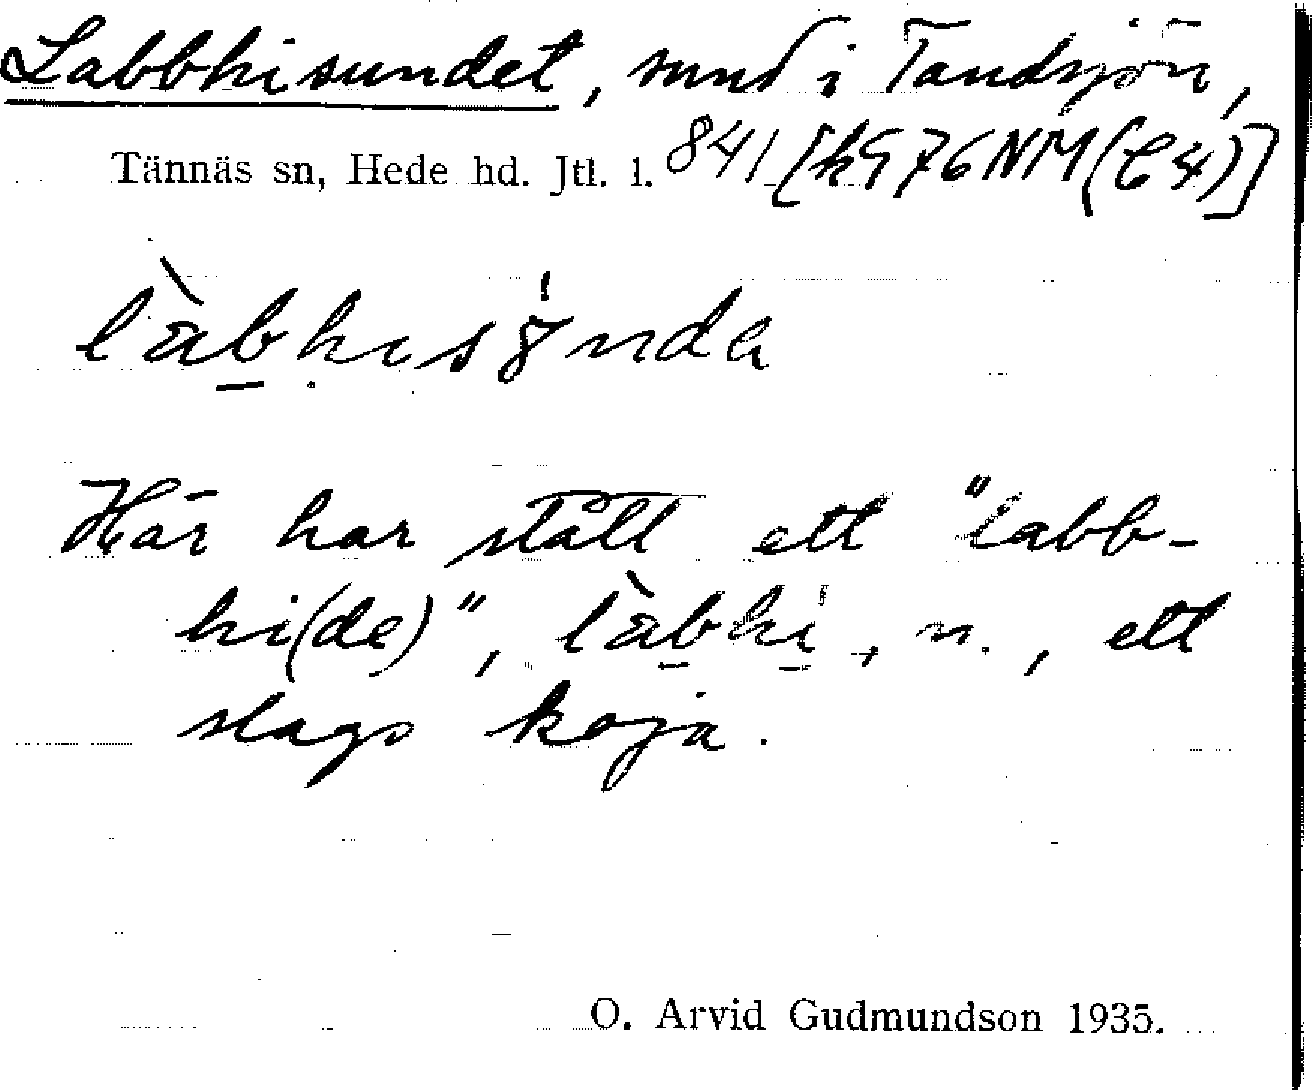 Labbhisundet, sund i Tandsjön,
Tännäs sn, Hede hd. Jtl. l. 841 [k976NM(C4)]
làbhisɣ́nda
Här har stått ett "labb-
hi(de)", làbhi, n., ett
slags koja.
O. Arvid Gudmundson 1935.